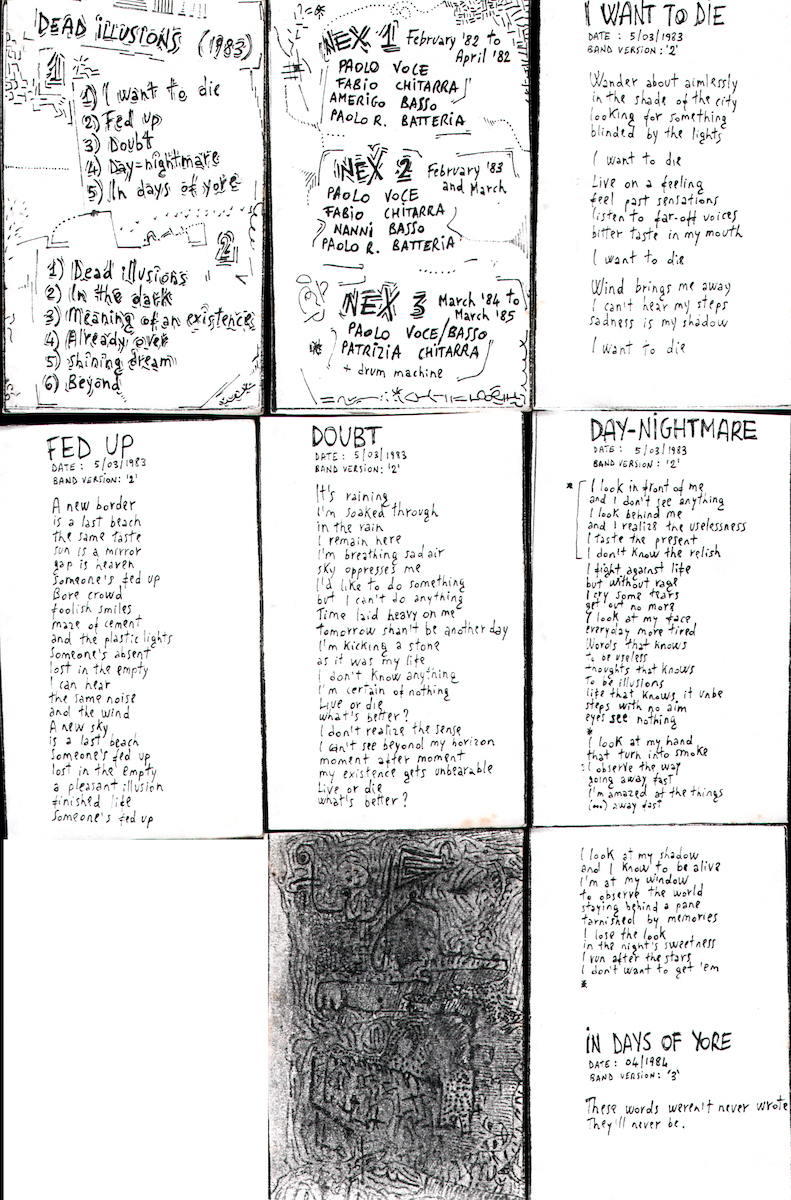 DEAD ILLUSIONS (1983)
1
1) I want to die
2) Fed up
3) Doubt
4) Day-nightmare
5) In days of yore
2
1) Dead illusions
2) In the dark
3) Meaning of an existence
4) Already over
5) Shining dream
6) Beyond
NEX 1 February '82 to
April '82
PAOLO VOCE
FABIO CHITARRA
AMERIGO BASSO
PAOLO R. BATTERIA
NEX 2 February '83
and March
PAOLO VOCE
FABIO CHITARRA
NANNI BASSO
PAOLO R. BATTERIA
NEX 3 March '84 to
March '85
PAOLO VOCE/BASSO
PATRIZIA CHITARRA
+ drum machine
I WANT TO DIE
DATE : 5/03/1983
BAND VERSION: '2'
Wander about aimlessly
in the shade of the city
looking for something
blinded by the lights
I want to die
Live on a feeling
feel past sensations
listen to far-off voices
bitter taste in my mouth
I want to die
Wind brings me away
I can't hear my steps
sadness is my shadow
I want to die
FED UP
DATE : 5/03/1983
BAND VERSION: '2'
A new border
is a last beach
the same taste
sun is a mirror
gap is heaven
Someone's fed up
Bore crowd
foolish smiles
maze of cement
and the plastic lights
Someone's absent
lost in the empty
I can hear
the same noise
and the wind
A new sky
is a last beach
Someone's fed up
lost in the empty
a pleasant illusion
finished life
Someone's fed up
DOUBT
DATE : 5/03/1983
BAND VERSION: '2'
It's raining
I'm soaked through
in the rain
I remain here
I'm breathing sad air
sky oppresses me
I'd like to do something
but I can't do anything
Time laid heavy on me
tomorrow shan't be another day
I'm kicking a stone
as it was my life
I don't know anything
I'm certain of nothing
Live or die
what's better?
I don't realize the sense
I can't see beyond my horizon
moment after moment
my existence gets unbearable
Live or die
what's better?
DAY-NIGHTMARE
DATE : 5/03/1983
BAND VERSION: '2'
* I look in front of me
and I don't see anything
I look behind me
and I realize the uselessness
I taste the present
I don't know the relish
I fight against life
but without rage
I cry some tears
get out no more
I look at my face
everyday more tired
Words that knows
to be useless
thoughts that knows
to be illusions
life that knows it unbe
steps with no aim
eyes see nothing
*
I look at my hand
that turn into smoke
I observe the way
going away fast
I'm amazed at the things
(...) away fast
I look at my shadow
and I know to be alive
I'm at my window
to observe the world
staying behind a pane
tarnished by memories
I lose the look
in the night's sweetness
I run after the stars
I don't want to get 'em
*
IN DAYS OF YORE
DATE : 04/1984
BAND VERSION: '3'
These words weren't never wrote
They'll never be.